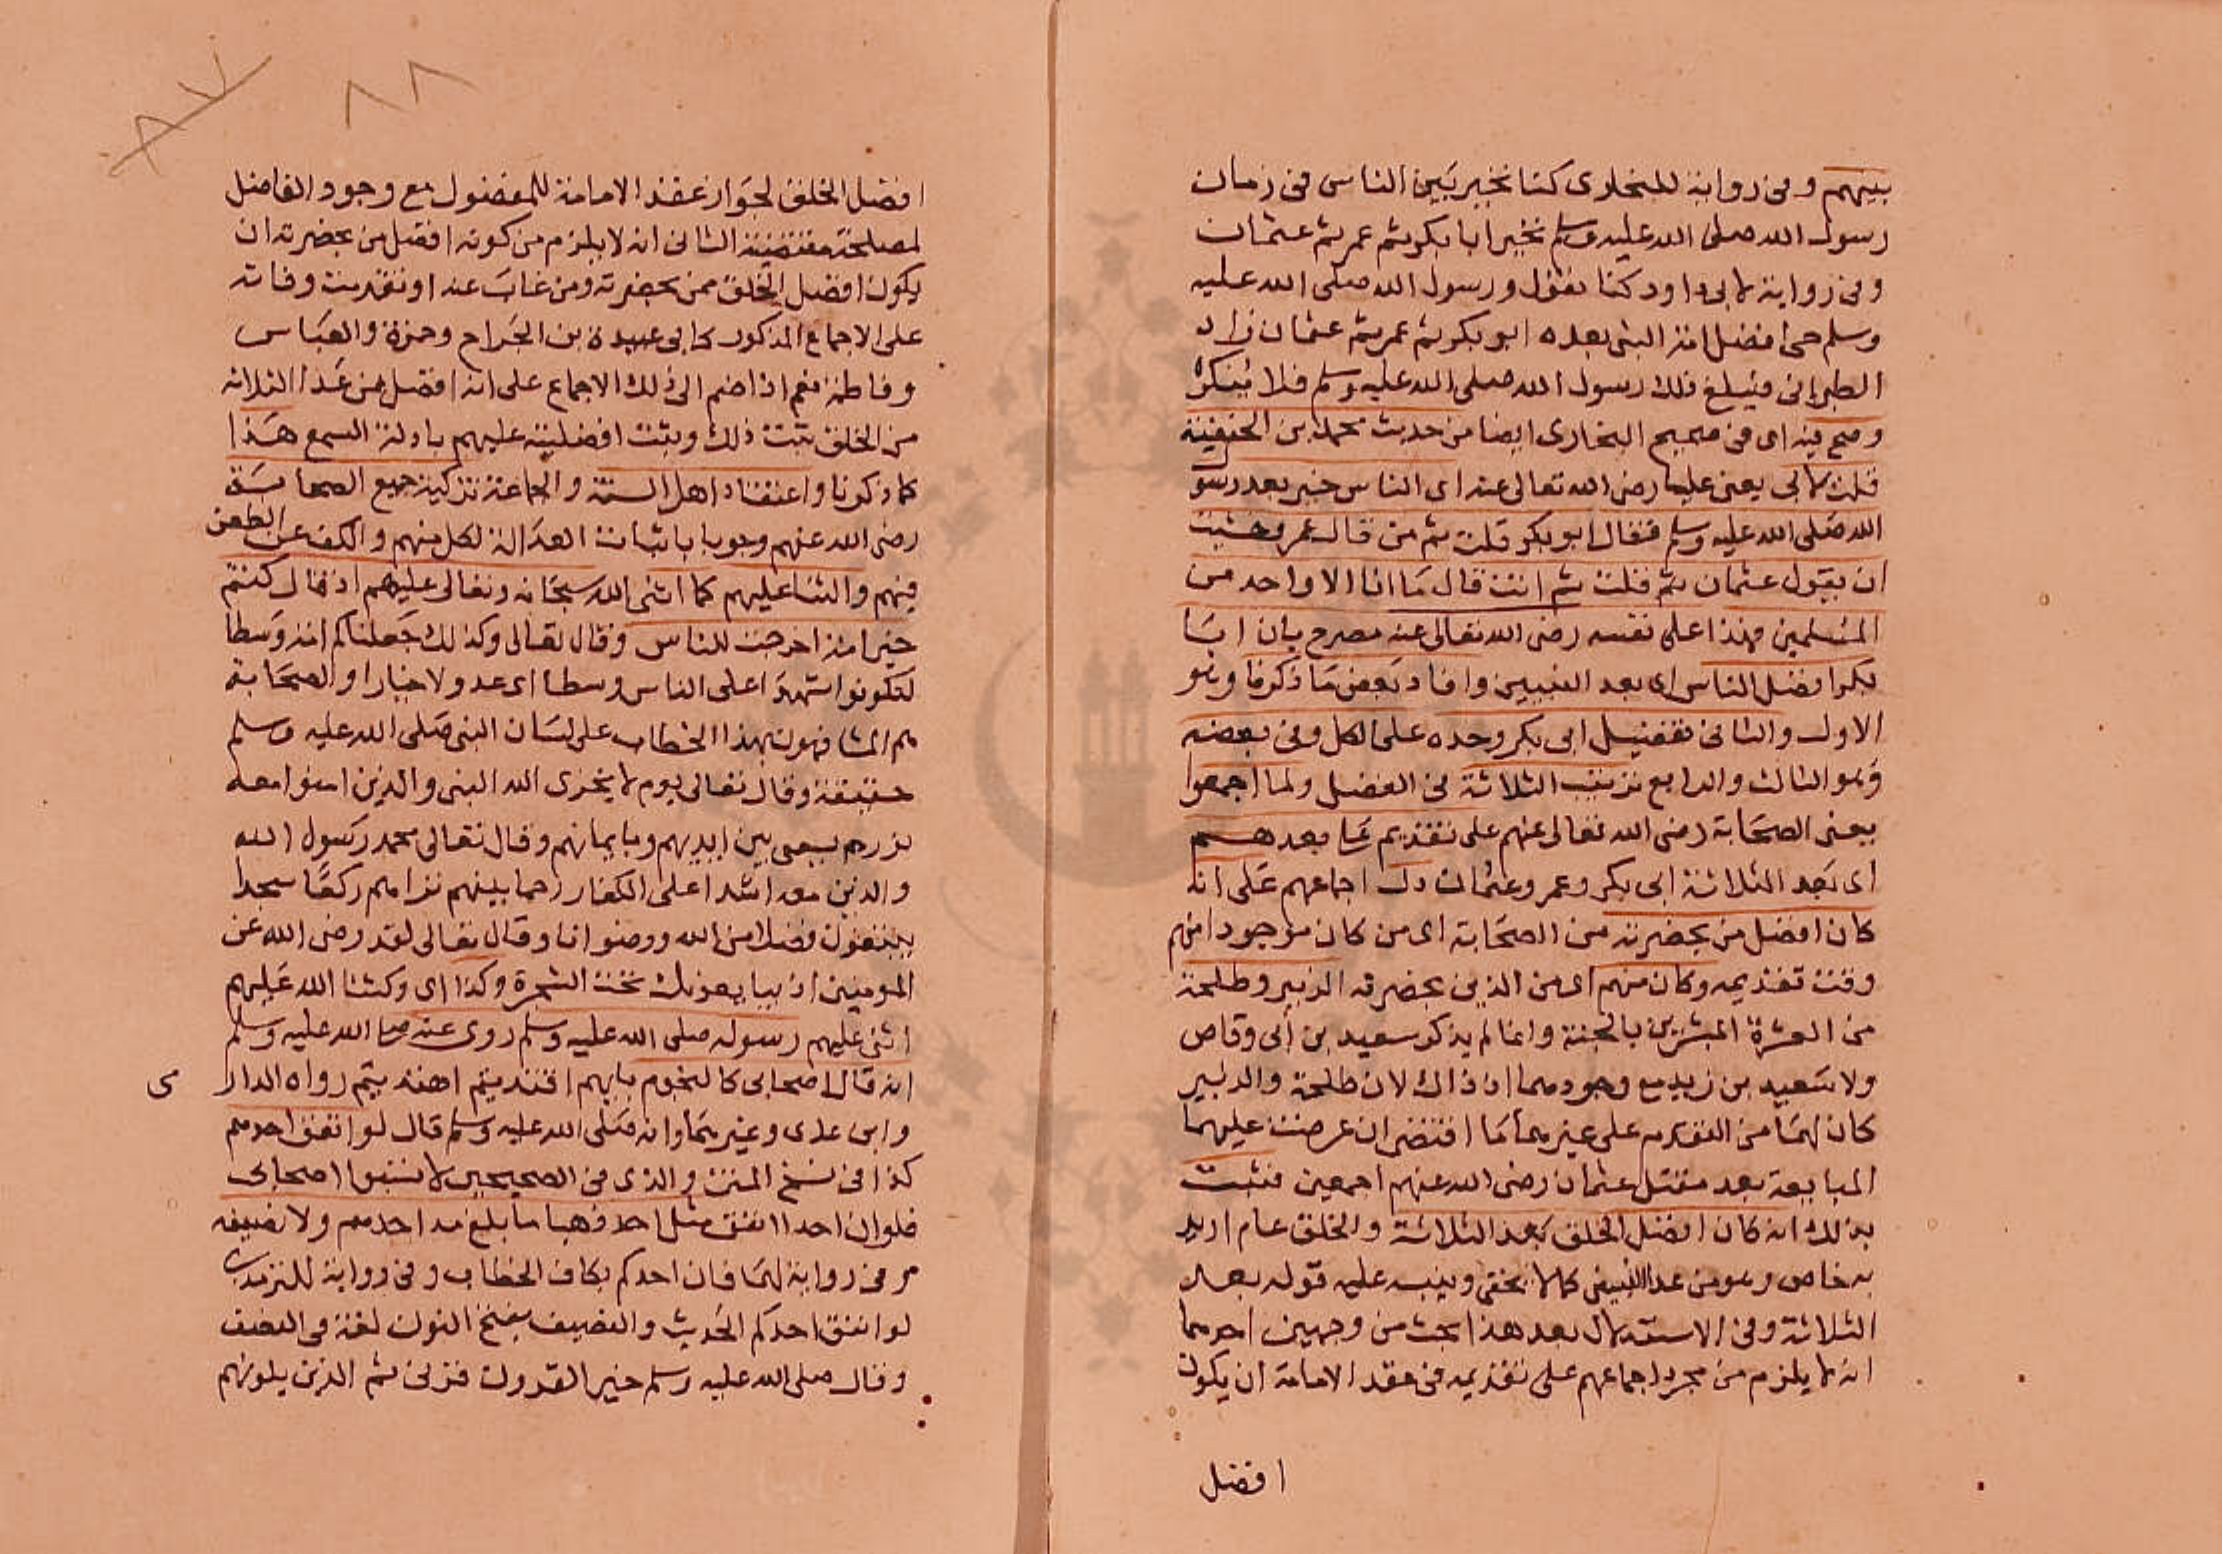 بينهم وفى رواية للبخارى كنا نخير بين الناس فى زمان
رسول الله صلى الله عليه وسلم نخير ابا بكر ثم عمر ثم عثمان
وفى رواية لابى داود كنا نقول ورسول الله صلى الله عليه
وسلم حى افضل امة النبى بعده ابو بكر ثم عمر ثم عثمان زاد
الطبرانى فيبلغ ذلك رسول الله صلى الله عليه وسلم فلا ينكره
وصح فيه اى فى صحيح البخارى ايضا من حديث محمد بن الحنفية
قلت لابى يعنى عليا رضى الله تعالى عنه اى الناس خير بعد رسو
الله صلى الله عليه وسلم فقال ابو بكر قلت ثم من قال عمر وخشيت
ان يقول عثمان ثم قلت ثم انت قال ما انا الا واحد من
المسلمين فهذا على نفسه رضى الله تعالى عنه مصرح بان ابا
بكر افضل الناس اى بعد النبيين وافاد بعض ما ذكرنا وهو
الاول والثانى تفضيل ابى بكر وحده على الكل وفى بعضه
وهو الثالث والرابع ترتيب الثلاثة فى الفضل ولما اجمعوا
يعنى الصحابة رضى الله تعالى عنهم على تقديم على بعدهم
اى بعد الثلاثة ابى بكر وعمر وعثمان دل اجماعهم على انه
كان افضل من بحضرته من الصحابة اى من كان موجودا منهم
وقت تقديمه وكان منهم اى من الذين بحضرته الزبير وطلحة
من العشرة المبشرين بالجنة وانما لم يذكر سعيد بن أبى وقاص
ولا سعيد بن زيد مع وجودهما اذ ذاك لان طلحة والزبير
كان لهما من التقدم على غيرهما ما اقتضى ان عرضت عليهما
المبايعة بعد مقتل عثمان رضى الله عنهم اجمعين فثبت
بذلك انه كان افضل الخلق بعد الثلاثة والخلق عام اريد
به خاص وهو من عدا النبيين كما لا يخفى وينبه عليه قوله بعد
الثلاثة وفى الاستدلال بعد هذا بحث من وجهين احدهما
انه لا يلزم من مجرد اجماعهم على تقديمه فى عقد الامامة ان يكون
افضل
٨٨
٨٧
افضل الخلق لجواز عقد الامامة للمفضول مع وجود الفاضل
لمصلحة مقتضية الثانى انه لا يلزم من كونه افضل من بحضرته ان
يكون افضل الخلق ممن بحضرته ومن غاب عنه او تقدمت وفاته
على الاجماع المذكور كابى عبيدة بن الجراح وحمزة والعباس
وفاطمة نعم اذا ضم الى ذلك الاجماع على انه افضل من عدا الثلاثة
من الخلق ثبت ذلك وثبت افضليته عليهم بادلة السمع هذا
كما ذكرنا واعتقاد اهل السنة والجماعة تزكية جميع الصحابة
رضى الله عنهم وجوبا باثبات العدالة لكل منهم والكف عن الطعن
فيهم والثنا عليهم كما اثنى الله سبحانه وتعالى عليهم اذ قال كنتم
خير امة اخرجت للناس وقال تعالى وكذلك جعلناكم امة وسطا
لتكونوا شهدا على الناس وسطا اى عدولا خيارا والصحابة
هم المشافهون بهذا الخطاب على لسان النبى صلى الله عليه وسلم
حقيقة وقال تعالى يوم لا يخزى الله النبى والذين امنوا معه
نورهم يسعى بين ايديهم وبايمانهم وقال تعالى محمد رسول الله
والذين معه اشدا على الكفار رحما بينهم تراهم ركعا سجدا
يبتغون فضلا من الله ورضوانا وقال تعالى لقد رضى الله عن
المومنين اذ يبايعونك تحت الشجرة وكذا اى وكثنا الله عليهم
اثنى عليهم رسوله صلى الله عليه وسلم روى عنه صلى الله عليه وسلم
انه قال اصحابى كالنجوم بايهم اقتديتم اهتديتم رواه الدار
مى
وابن عدى وغيرهما وانه صلى الله عليه وسلم قال لو انفق احدهم
كذا فى نسخ المتن والذى فى الصحيحين لا تسبوا اصحابى
فلو ان احدا انفق مثل احد ذهبا ما بلغ مد احدهم ولا نصيفه
وفى رواية لهما فان احدكم بكاف الخطاب وفى رواية للترمذى
لو انفق احدكم الحديث والنصيف بفتح النون لغة فى النصف
وقال صلى الله عليه وسلم خير القرون قرنى ثم الذين يلونهم